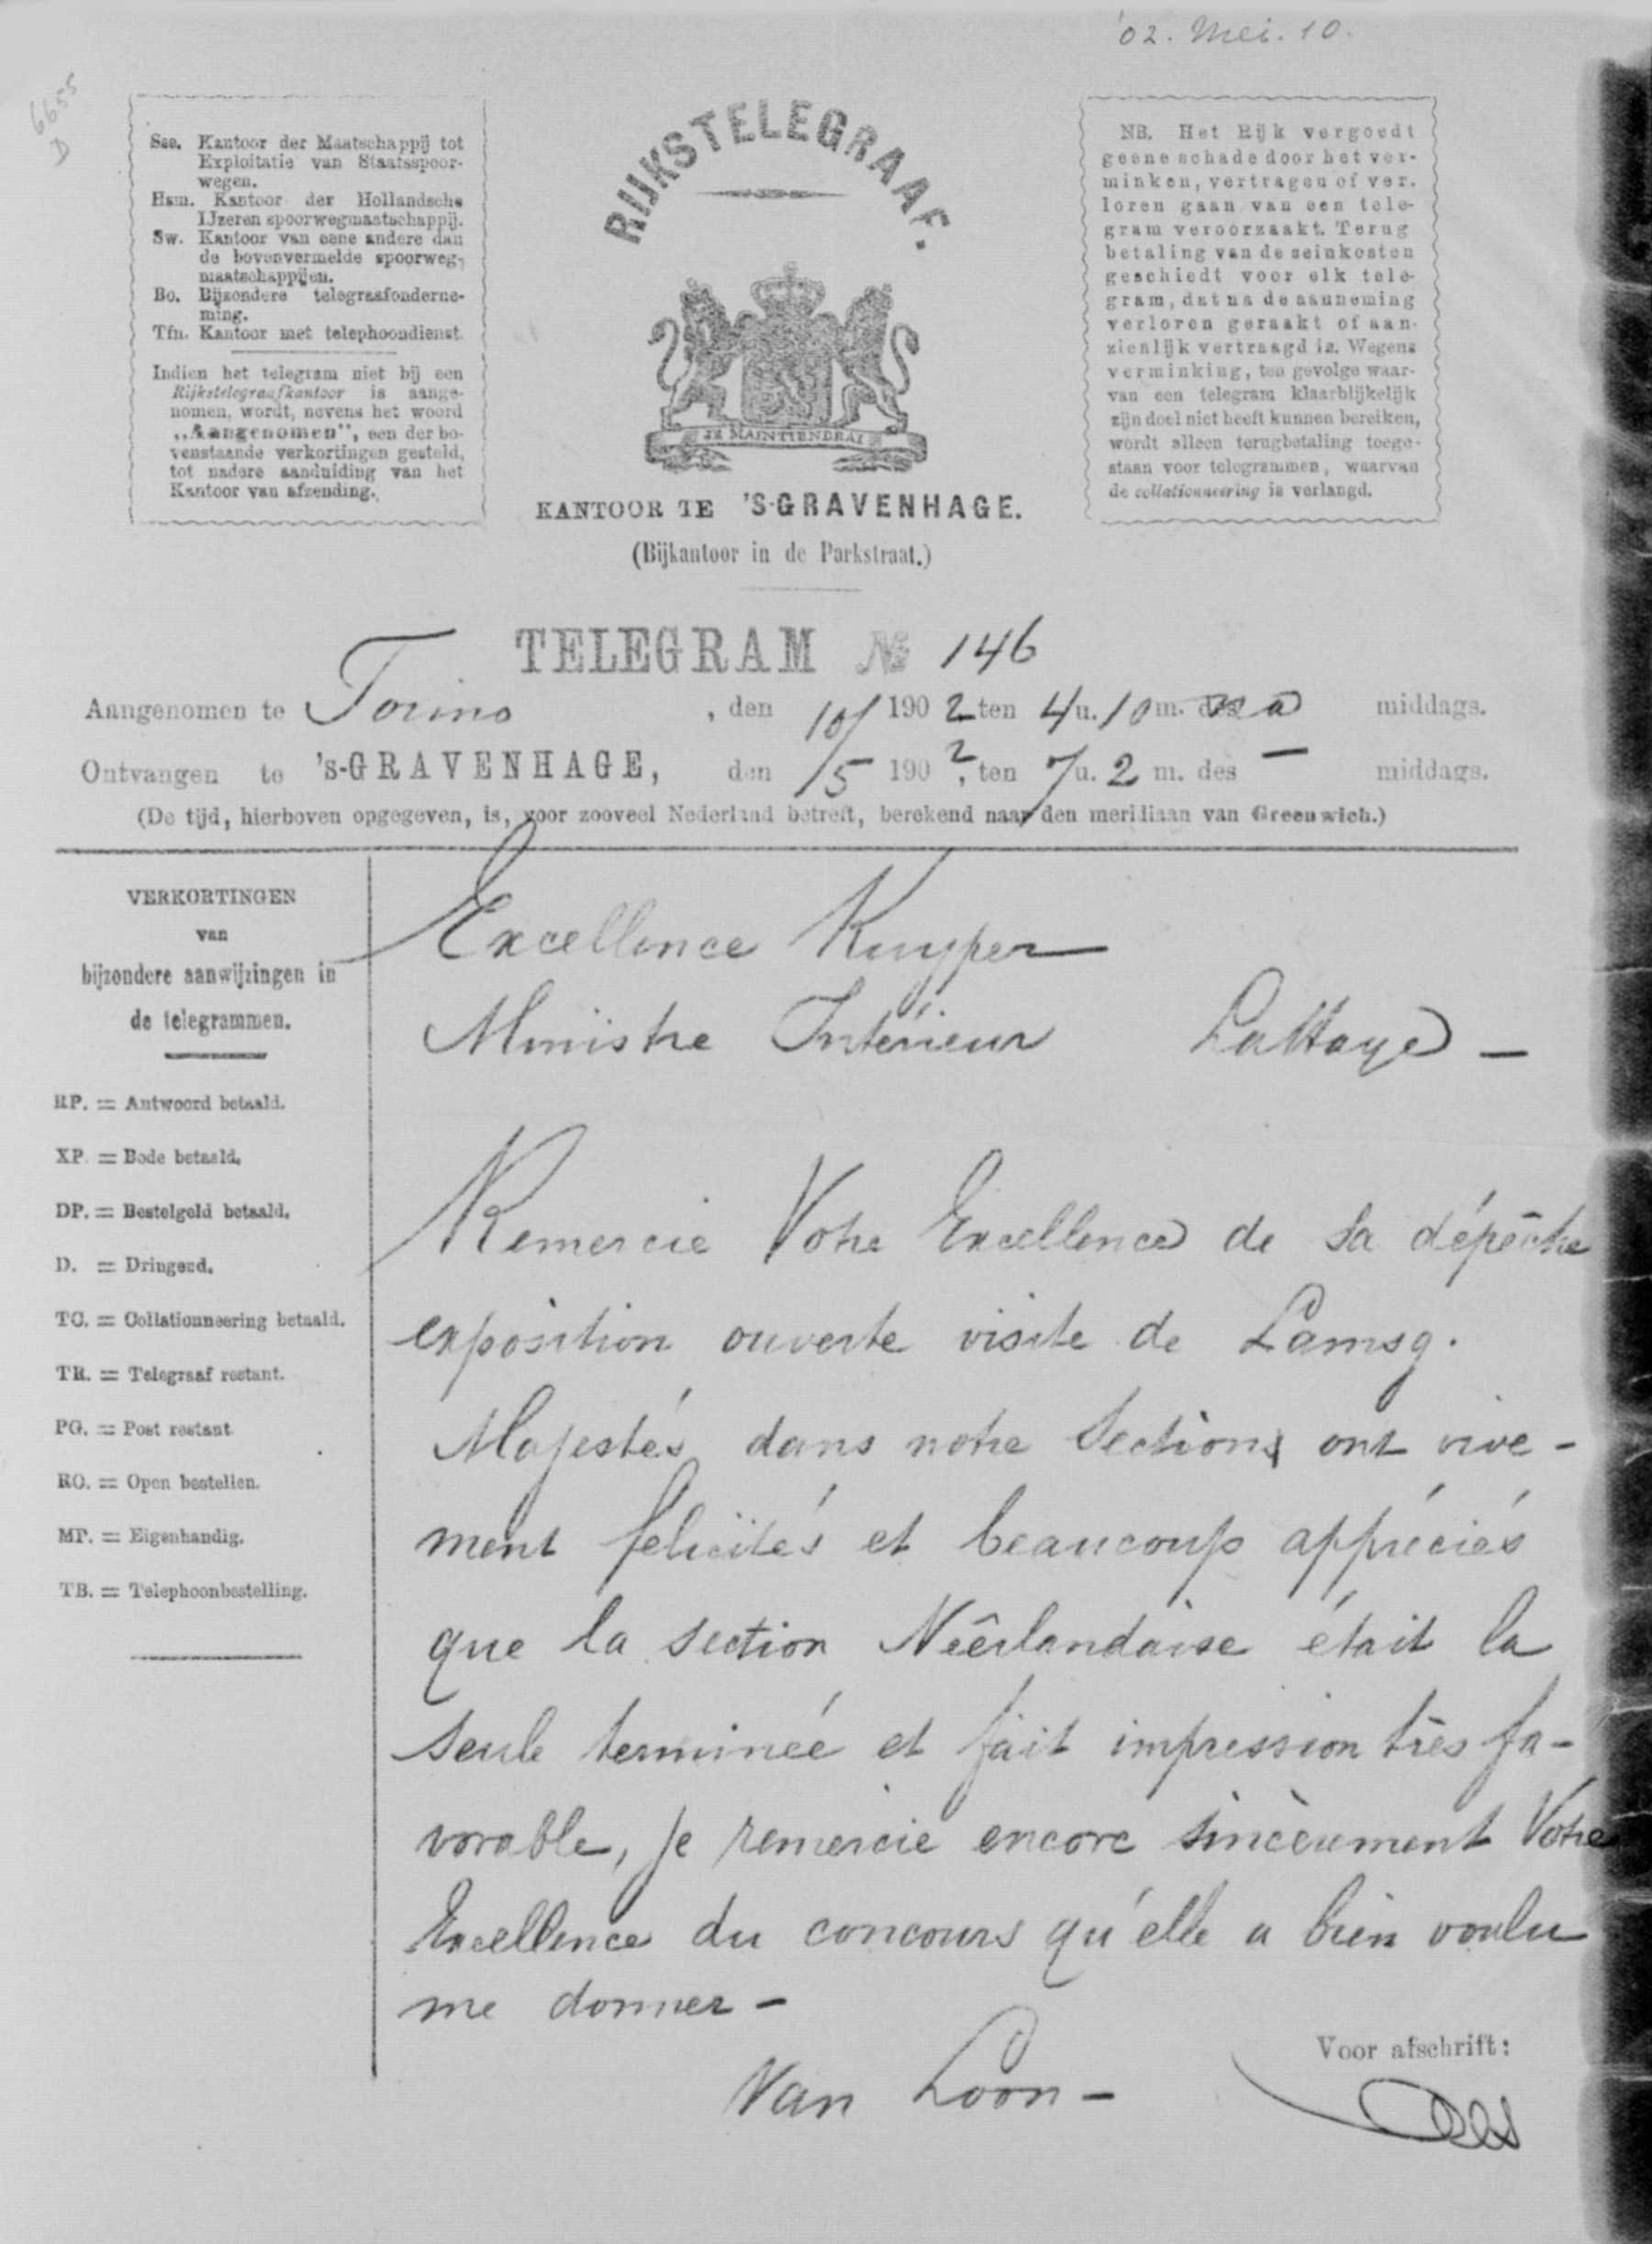 '02. Mei. 10.
6655
D
Sss. Kantoor der Maatschappij tot
Exploitatie van Staatsspoor-
wegen.
Hsm. Kantoor der Hollandsche
IJzeren spoorwegmaatschappij.
Sw. Kantoor van eene andere dan
de bovenvermelde spoorweg-
maatschappijen.
Bo. Bijzondere telegraafonderne-
ming.
Tfn. Kantoor met telephoondienst.
Indien het telegram niet bij een
Rijkstelegraafkantoor is aange-
nomen, wordt, nevens het woord
„Aangenomen”, een der bo-
venstaande verkortingen gesteld,
tot nadere aanduiding van het
Kantoor van afzending.
RIJKSTELEGRAAF.
JE MAINTIENDRAI
KANTOOR TE 'S-GRAVENHAGE.
(Bijkantoor in de Parkstraat.)
NB. Het Rijk vergoedt
geene schade door het ver-
minken, vertragen of ver-
loren gaan van een tele-
gram veroorzaakt. Terug
betaling van de seinkosten
geschiedt voor elk tele-
gram, dat na de aanneming
verloren geraakt of aan-
zienlijk vertraagd is. Wegens
verminking, ten gevolge waar-
van een telegram klaarblijkelijk
zijn doel niet heeft kunnen bereiken,
wordt alleen terugbetaling toege-
staan voor telegrammen, waarvan
de collationneering is verlangd.
TELEGRAM № 146
Aangenomen te Torino, den 10/ 1902 ten 4 u. 10 m. des na middags.
Ontvangen te 's-GRAVENHAGE, den /5 1902, ten 7 u. 2 m. des — middags.
(De tijd, hierboven opgegeven, is, voor zooveel Nederland betreft, berekend naar den meridiaan van Greenwich.)
VERKORTINGEN
van
bijzondere aanwijzingen in
de telegrammen.
RP. = Antwoord betaald.
XP. = Bode betaald.
DP. = Bestelgeld betaald.
D. = Dringend.
TC. = Collationneering betaald.
TR. = Telegraaf restant.
PG. = Post restant.
RO. = Open bestellen.
MP. = Eigenhandig.
TB. = Telephoonbestelling.
Excellence Kuyper
Ministre Intérieur LaHaye —
Remercie Votre Excellence de sa dépêche
exposition ouverte visite de Lamsg.
Majestés dans notre Sections ont vive-
ment félicités et beaucoup appréciés
que la section Néêrlandaise était la
seule terminée et fait impression très fa-
vorable, je remercie encore sincèrement Votre
Excellence du concours qu'elle a bien voulu
me donner —
Van Loon —
Voor afschrift: